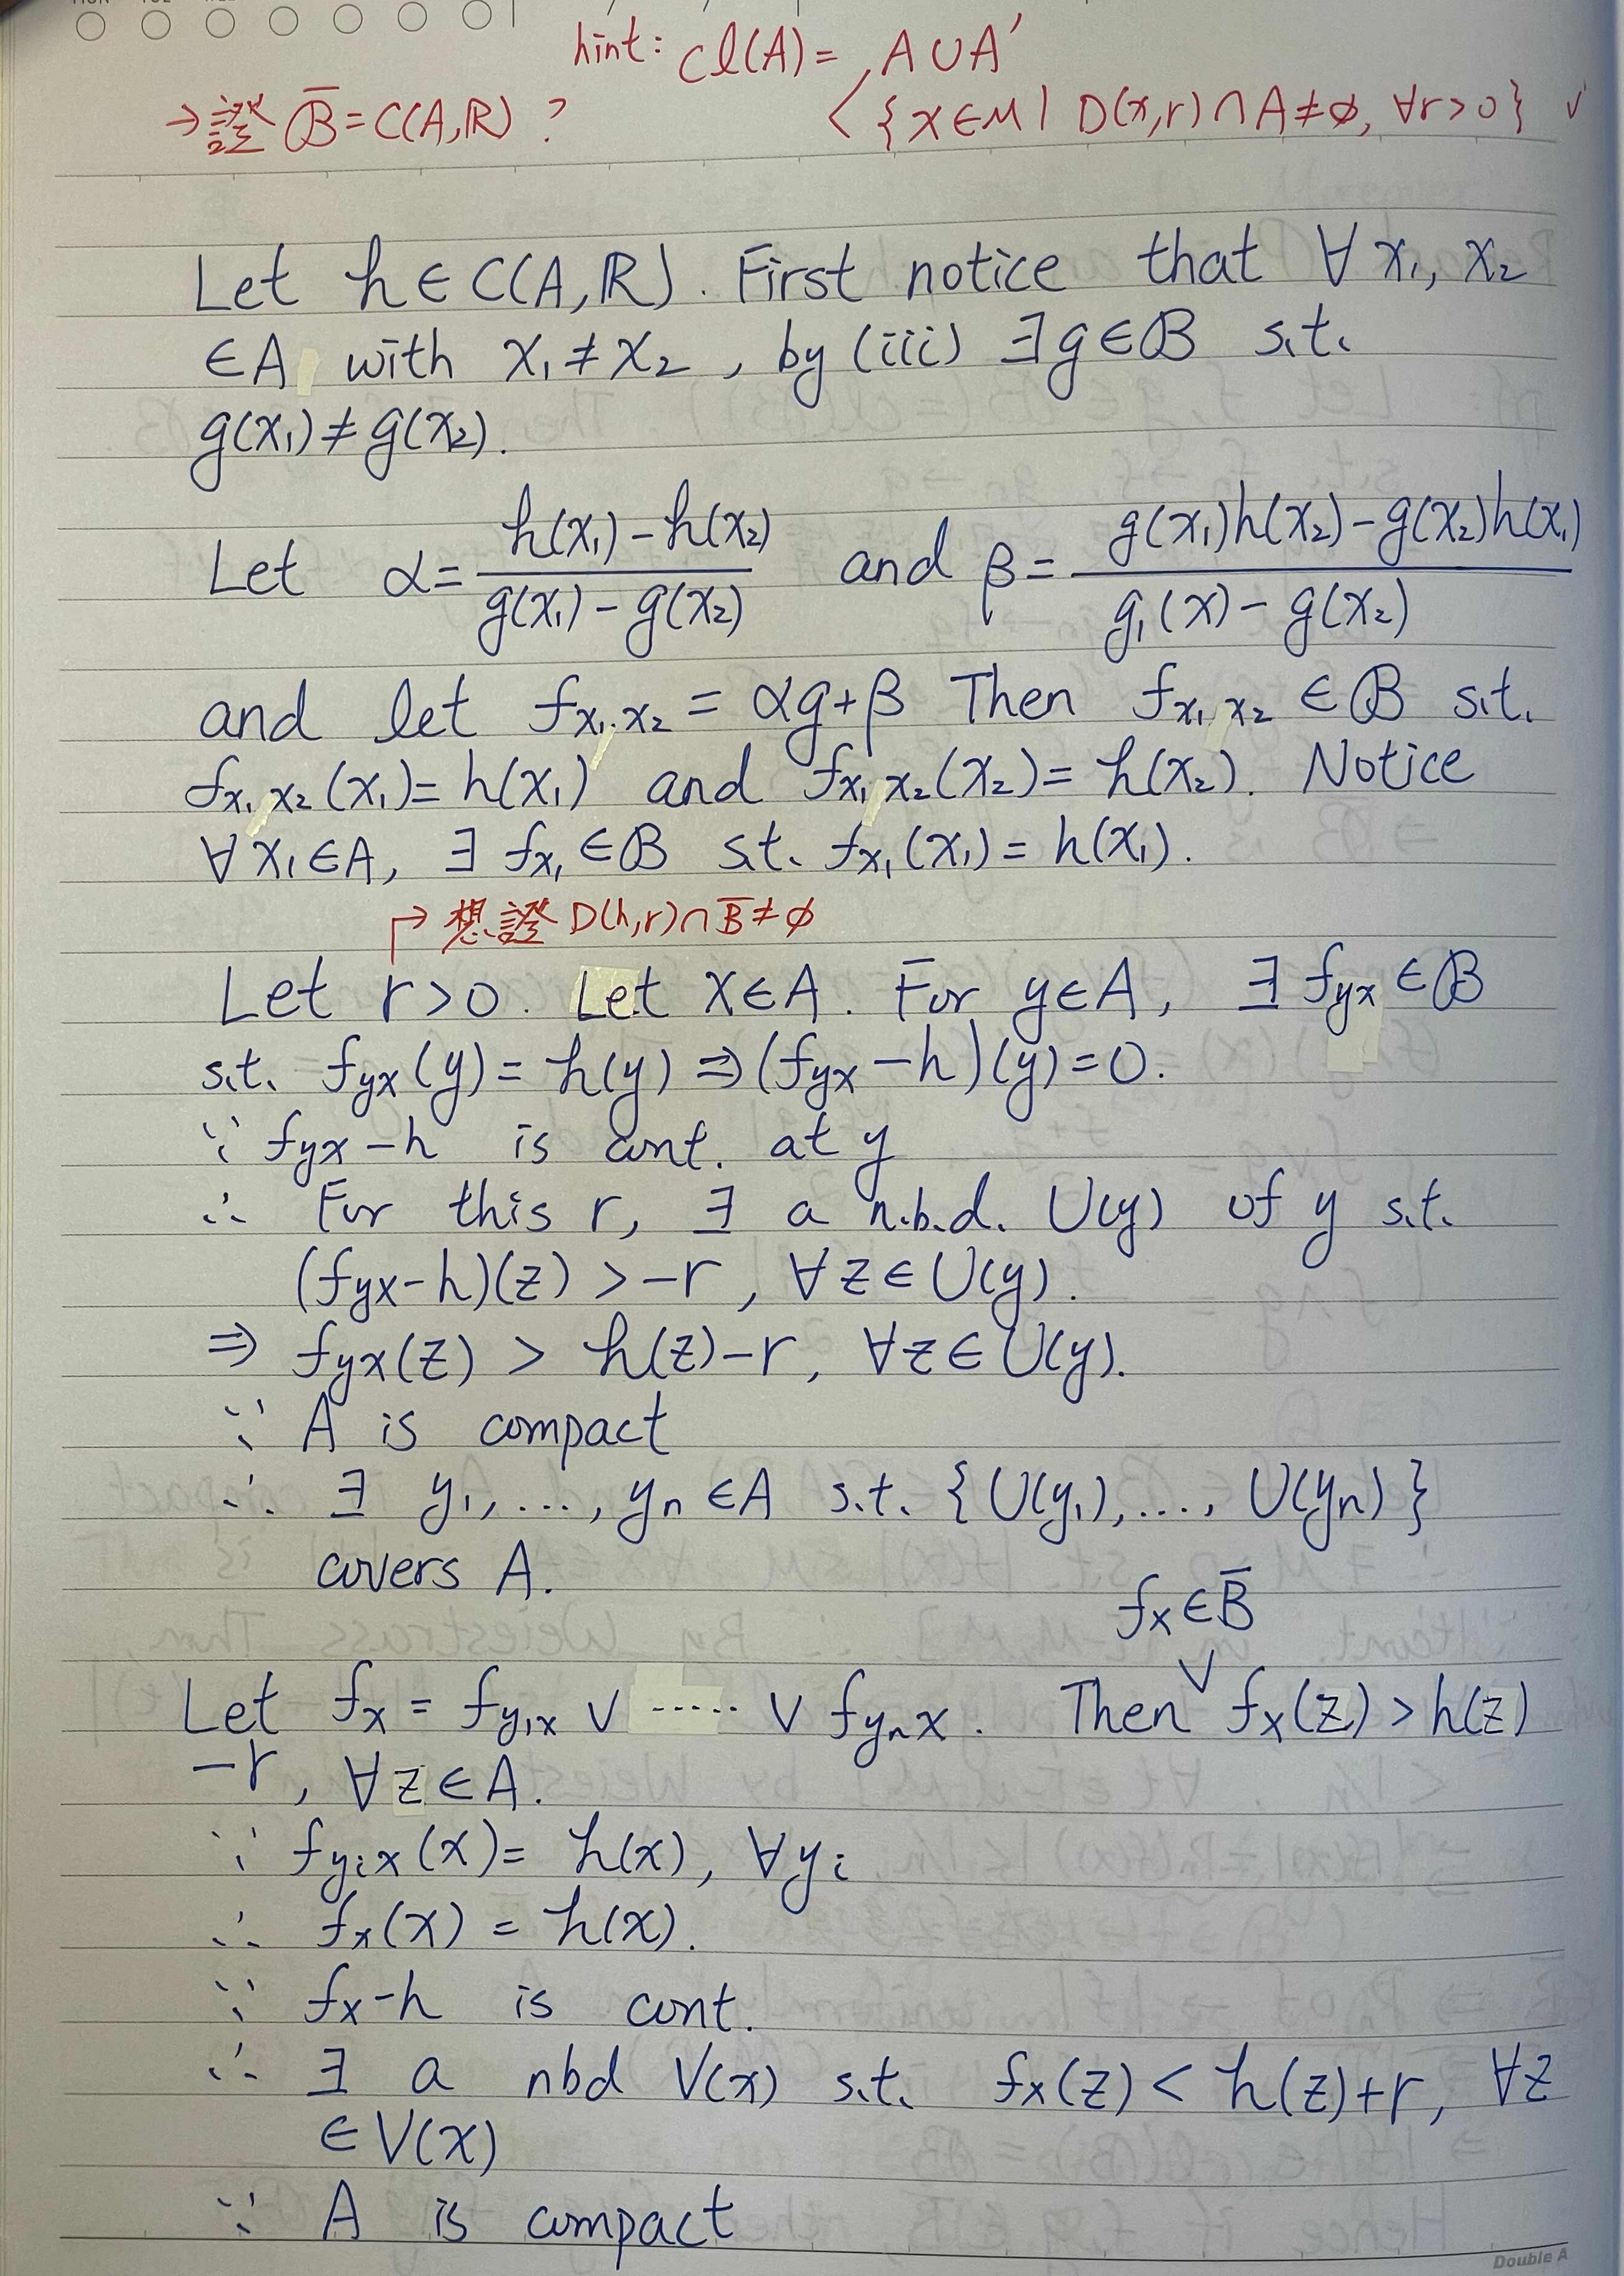 hint: cl(A) = A ∪ A'
→ 證 B̅ = C(A,ℝ) ? < {x ∈ M | D(x,r) ∩ A ≠ ∅, ∀r>0} ✓
Let h ∈ C(A,ℝ). First notice that ∀ x₁, x₂
∈ A with x₁ ≠ x₂, by (iii) ∃ g ∈ B s.t.
g(x₁) ≠ g(x₂).
Let α = (h(x₁) - h(x₂)) / (g(x₁) - g(x₂)) and β = (g(x₁)h(x₂) - g(x₂)h(x₁)) / (g₁(x) - g(x₂))
and let f_{x₁x₂} = αg + β Then f_{x₁x₂} ∈ B s.t.
f_{x₁x₂}(x₁) = h(x₁) and f_{x₁x₂}(x₂) = h(x₂). Notice
∀ x₁ ∈ A, ∃ f_{x₁} ∈ B s.t. f_{x₁}(x₁) = h(x₁).
↱ 想證 D(h,r) ∩ B̅ ≠ ∅
Let r > 0. Let x ∈ A. For y ∈ A, ∃ f_{yx} ∈ B
s.t. f_{yx}(y) = h(y) ⇒ (f_{yx} - h)(y) = 0.
∵ f_{yx} - h is cont. at y
∴ For this r, ∃ a n.b.d. U(y) of y s.t.
(f_{yx} - h)(z) > -r, ∀ z ∈ U(y).
⇒ f_{yx}(z) > h(z) - r, ∀ z ∈ U(y).
∵ A is compact
∴ ∃ y₁, ..., yₙ ∈ A s.t. {U(y₁), ..., U(yₙ)}
covers A.
fₓ ∈ B̅
Let fₓ = f_{y₁x} ∨ ..... ∨ f_{yₙx}. Then ∨ fₓ(z) > h(z)
- r, ∀ z ∈ A.
∵ f_{yᵢx}(x) = h(x), ∀ yᵢ
∴ fₓ(x) = h(x).
∵ fₓ - h is cont.
∴ ∃ a nbd V(x) s.t. fₓ(z) < h(z) + r, ∀z
∈ V(x)
∵ A is compact
Double A